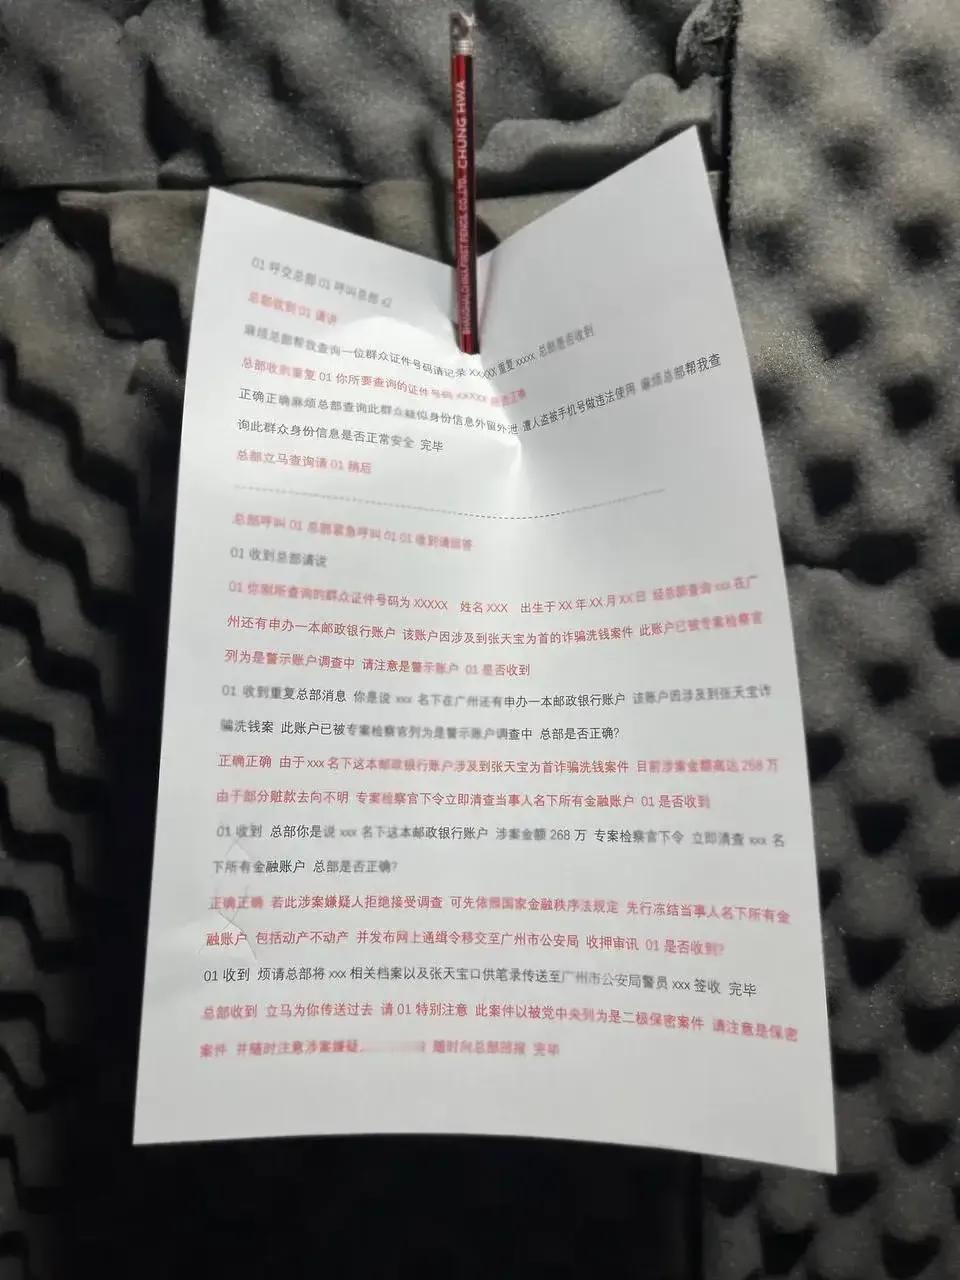 SHANGHAI CHINA FIRST PENCIL CO.,LTD. CHUNG HWA
01呼交总部01 呼叫总部 x2
总部收到01 请讲
麻烦总部帮我查询一位群众证件号码请记录 XXXXX重复xxxxx 总部是否收到
总部收到重复01你所要查询的证件号码 xxXXX 是否正确
正确正确麻烦总部查询此群众疑似身份信息外留外泄 遭人盗被手机号做违法使用 麻烦总部帮我查
询此群众身份信息是否正常安全 完毕
总部立马查询请01稍后
总部呼叫01总部紧急呼叫01 01收到请回答
01收到总部请说
01 你刚所查询的群众证件号码为XXXXX 姓名XXX 出生于XX年XX月XX日 经总部查询 xxx在广
州还有申办一本邮政银行账户 该账户因涉及到张天宝为首的诈骗洗钱案件 此账户已被专案检察官
列为是警示账户调查中 请注意是警示账户 01是否收到
01 收到重复总部消息 你是说 xxx 名下在广州还有申办一本邮政银行账户 该账户因涉及到张天宝诈
骗洗钱案 此账户已被专案检察官列为是警示账户调查中 总部是否正确?
正确正确 由于xxx名下这本邮政银行账户涉及到张天宝为首诈骗洗钱案件 目前涉案金额高达268万
由于部分赃款去向不明 专案检察官下令立即清查当事人名下所有金融账户 01是否收到
01收到 总部你是说 xxx 名下这本邮政银行账户 涉案金额268万 专案检察官下令 立即清查 xxx 名
下所有金融账户 总部是否正确?
正确正确 若此涉案嫌疑人拒绝接受调查 可先依照国家金融秩序法规定 先行冻结当事人名下所有金
融账户 包括动产不动产 并发布网上通缉令移交至广州市公安局 收押审讯 01是否收到?
01收到 烦请总部将xxx相关档案以及张天宝口供笔录传送至广州市公安局警员xxx签收 完毕
总部收到 立马为你传送过去 请01特别注意 此案件以被党中央列为是二极保密案件 请注意是保密
案件 并随时注意涉案嫌疑 随时向总部回报 完毕